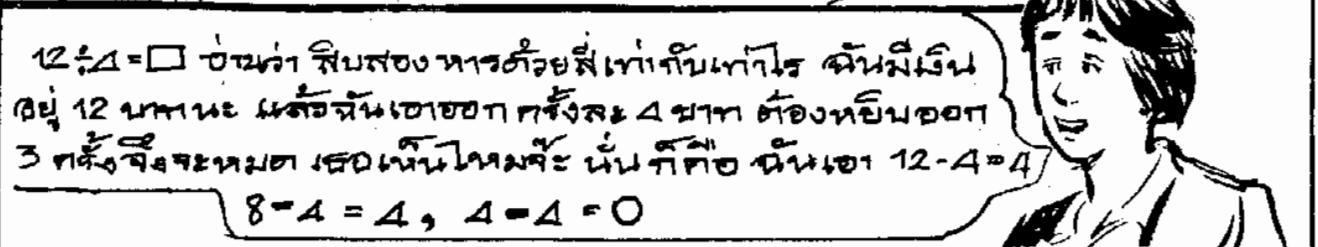 12÷4=□ อ่านว่า สิบสองหารด้วยสี่เท่ากับเท่าไร ฉันมีเงิน
อยู่ 12 บาทนะ แล้วฉันเอาออกครั้งละ 4 บาท ต้องหยิบออก
3 ครั้งจึงจะหมด เธอเห็นไหมจ๊ะ นั่นก็คือ ฉันเอา 12-4=4
8-4 = 4, 4-4 = 0